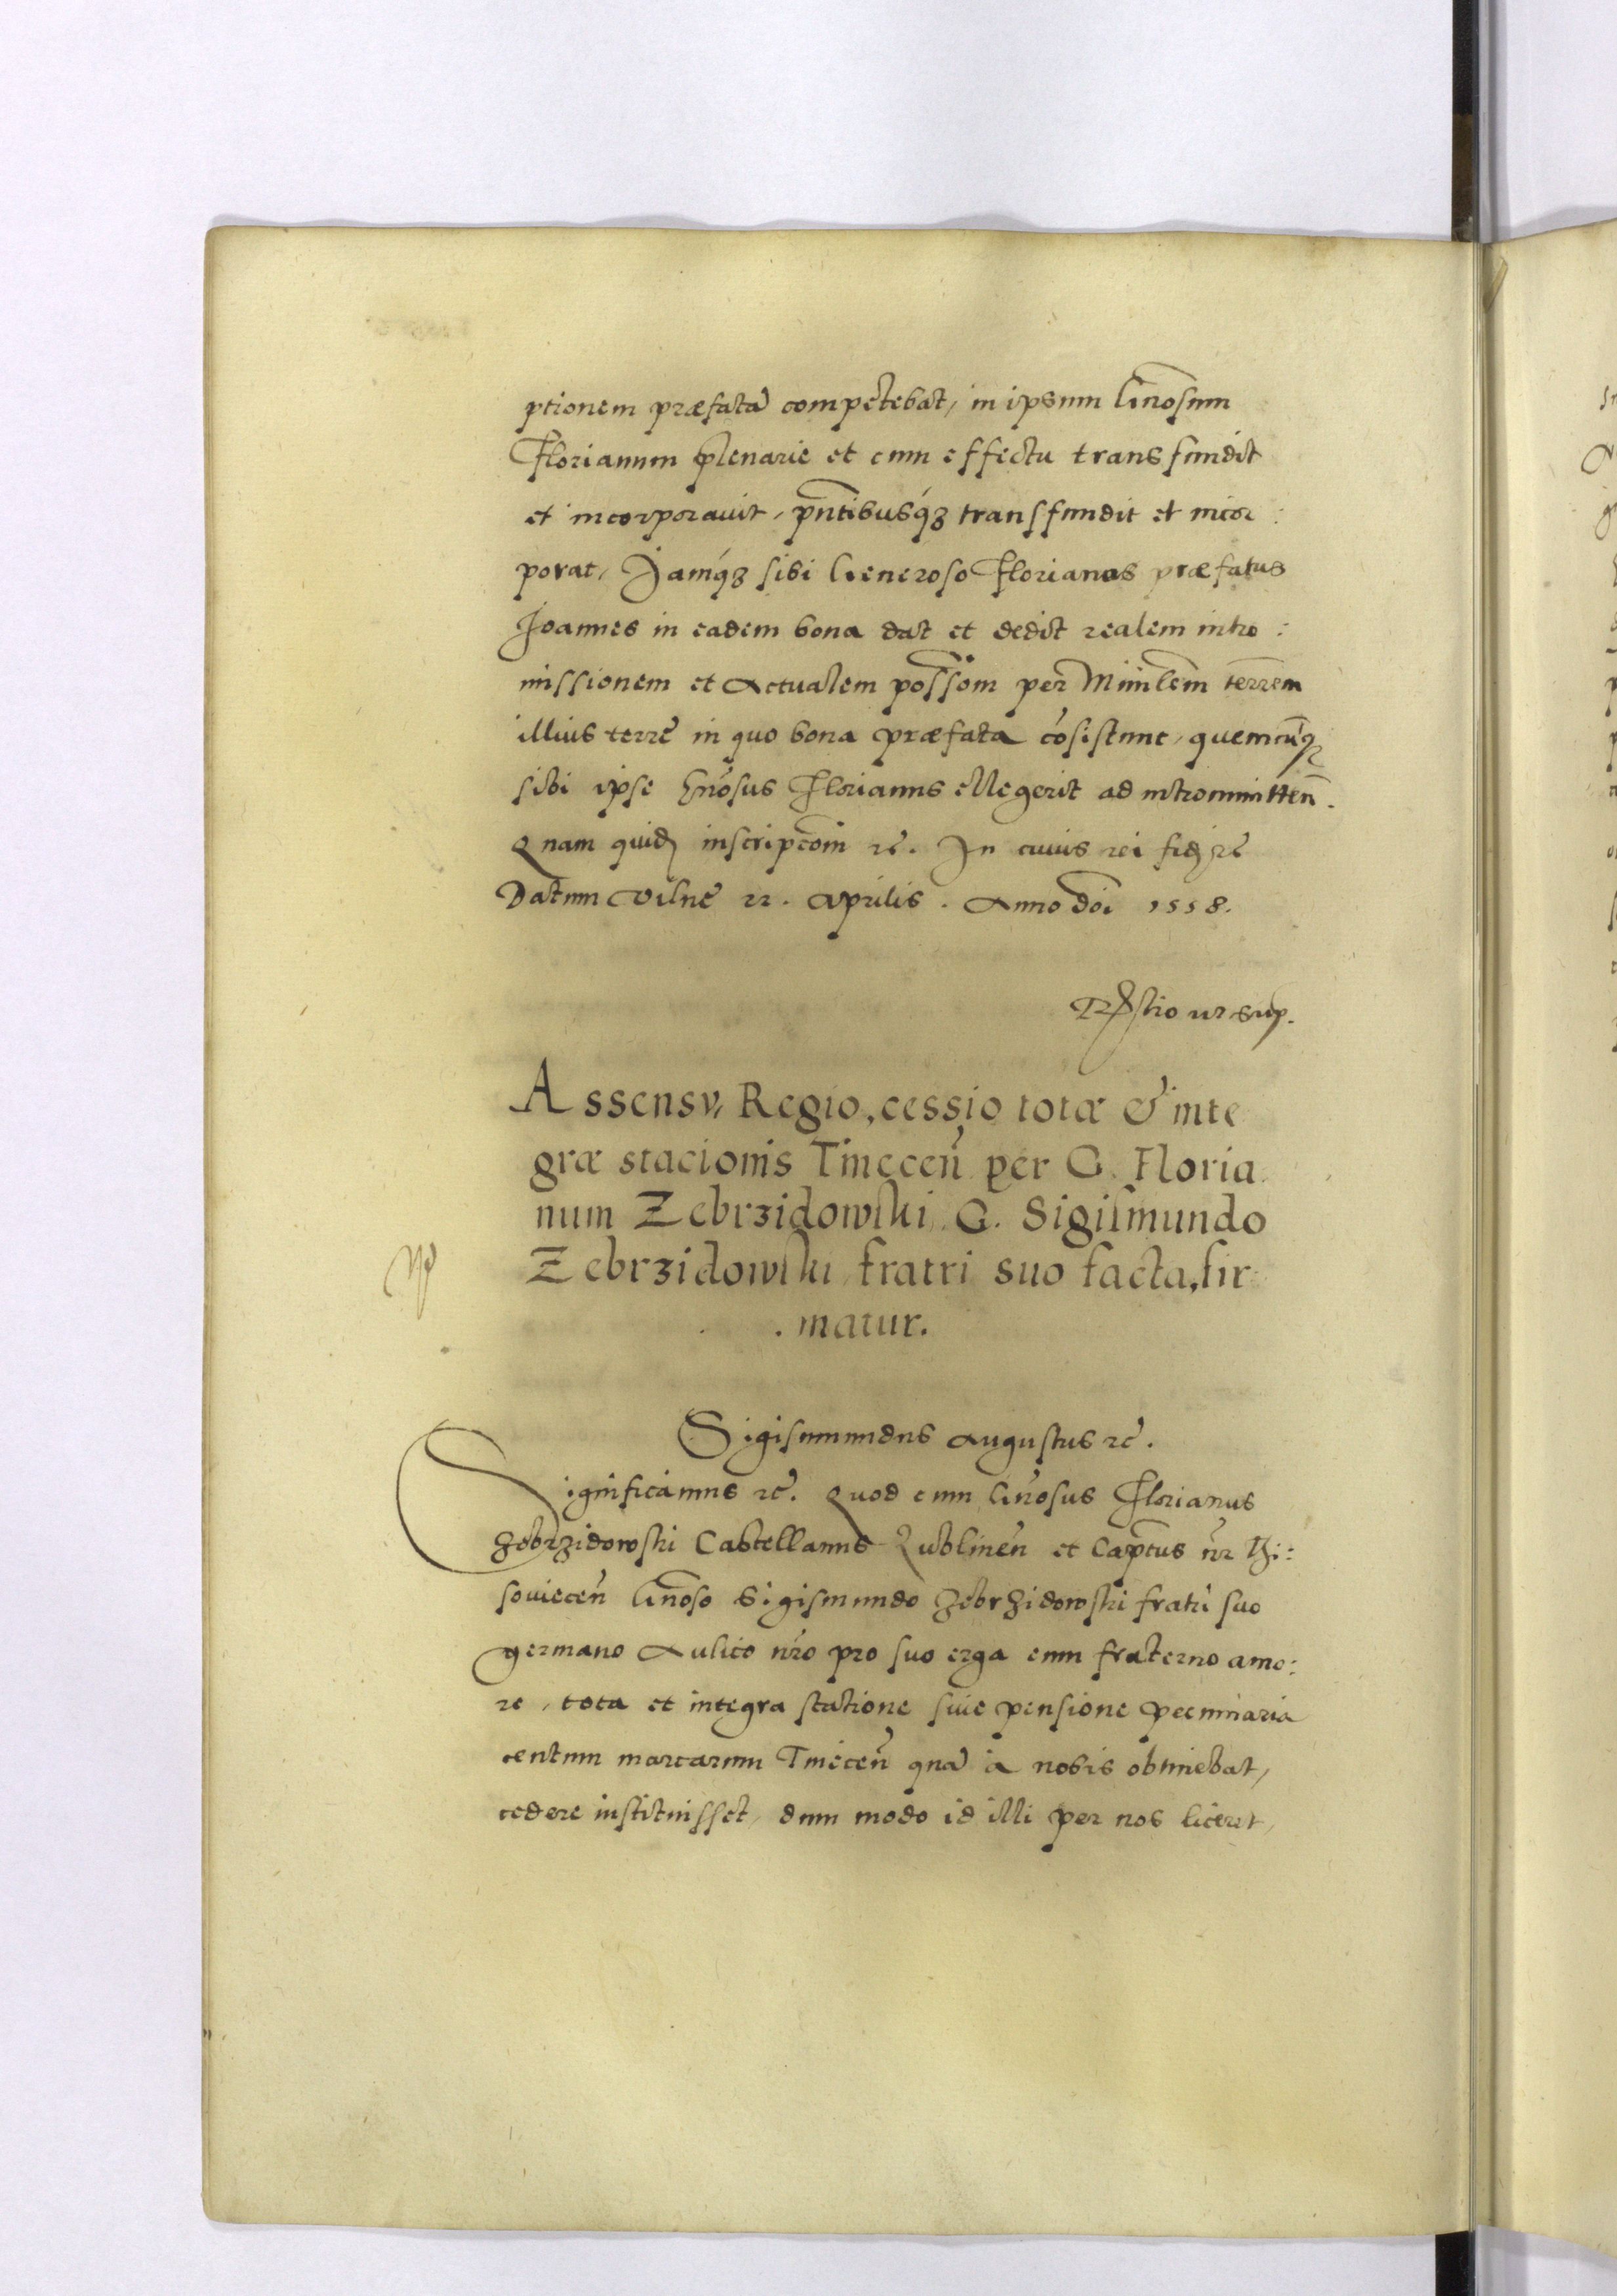 ptionem præfatã competebat, in ipsum Gñosum
Florianum plenarie et cum effectu transfundit
et incorporavit, pñtibusq́ꝫ transfundit et incor:
porat, Jamq́ꝫ sibi Generoso Florianus præfatus
Joannes in eadem bona dat et dedit realem intro:
missionem et actualem possõm per Minlem̃ terrem̃
illius terre in quo bona præfata cõsistunt, quemcũqꝫ
sibi ipse Gñosus Florianus ellegerit ad intrommitteñ.
Quam quidẽ inscripcõm ꝛc̃. In cuius rei fidẽ ꝛc̃
Datum Vilne 22. Aprilis. Anno Doĩ 1558.
ut sup.
Assensu, Regio, cessio totæ & inte
græ stacionis Tinecen̄ per G. Floria
num Zebrzidowski, G. Sigismundo
Zebrzidowski fratri suo facta, fir
. matur.
Sigismundus Augustus ꝛc̃.
Significamus ꝛc̃. Quod cum Gñosus Florianus
Zebrzidowski Castellanus Lublineñ et Capt̃us nr̃ Thi:
sovieceñ Gñoso Sigismundo Zebrzidowski fratri suo
germano Aulico nr̃o pro suo erga eum fraterno amo:
re, tota et integra statione siue pensione pecuniaria
centum marcarum Tineceñ quã a nobis obtinebat,
cedere instituisset, dum modo id illi per nos liceret,